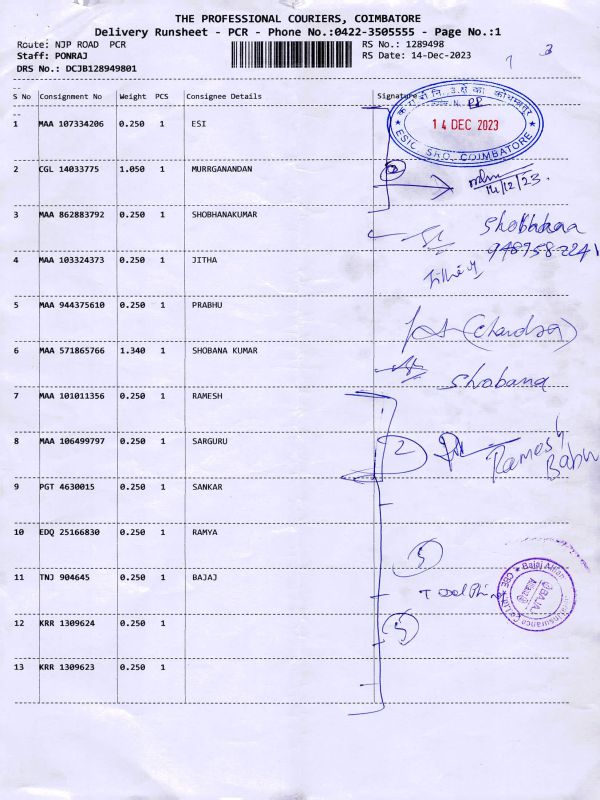 THE PROFESSIONAL COURIERS, COIMBATORE
Delivery Runsheet - PCR - Phone No.:0422-3505555 - Page No.:1
Route: NJP ROAD PCR RS No.: 1289498
Staff: PONRAJ RS Date: 14-Dec-2023
DRS No.: DCJB128949801
S No Consignment No Weight PCS Consignee Details Signature
1 MAA 107334206 0.250 1 ESI
14 DEC 2023
ESIC, SRO, COIMBATORE
2 CGL 14033775 1.050 1 MURRGANANDAN
2
14/12/23.
3 MAA 862883792 0.250 1 SHOBHANAKUMAR
Shobhanaa
4 MAA 103324373 0.250 1 JITHA
5 MAA 944375610 0.250 1 PRABHU
(Chandra)
6 MAA 571865766 1.340 1 SHOBANA KUMAR
Shobana
7 MAA 101011356 0.250 1 RAMESH
8 MAA 106499797 0.250 1 SARGURU
2 Ramesh Babu
9 PGT 4630015 0.250 1 SANKAR
10 EDQ 25166830 0.250 1 RAMYA
11 TNJ 904645 0.250 1 BAJAJ
BAJAJ
12 KRR 1309624 0.250 1
13 KRR 1309623 0.250 1